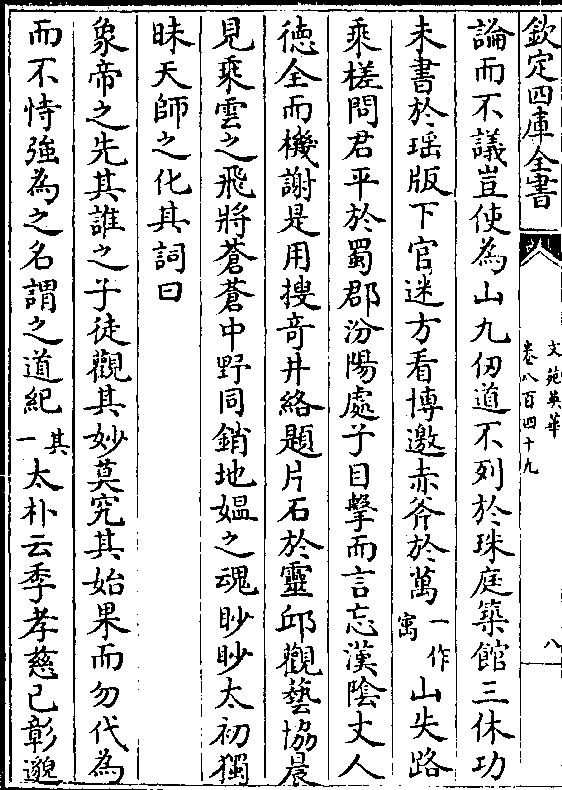 欽定四庫全書
文苑英華
卷八百四十九
八
論而不議豈使為山九仞道不列於珠庭築館三休功
未書於瑶版下官迷方看博邀赤斧於萬一作寓山失路
乘槎問君平於蜀郡汾陽處子目擊而言忘漢陰丈人
徳全而機謝是用搜竒井絡題片石於靈邱觀藝協晨
見乘雲之飛將蒼蒼中野同銷地媼之魂眇眇太初獨
昧天師之化其詞曰
象帝之先其誰之子徒觀其妙莫究其始果而勿代為
而不恃強為之名謂之道紀其一太朴云季孝慈已彰邈